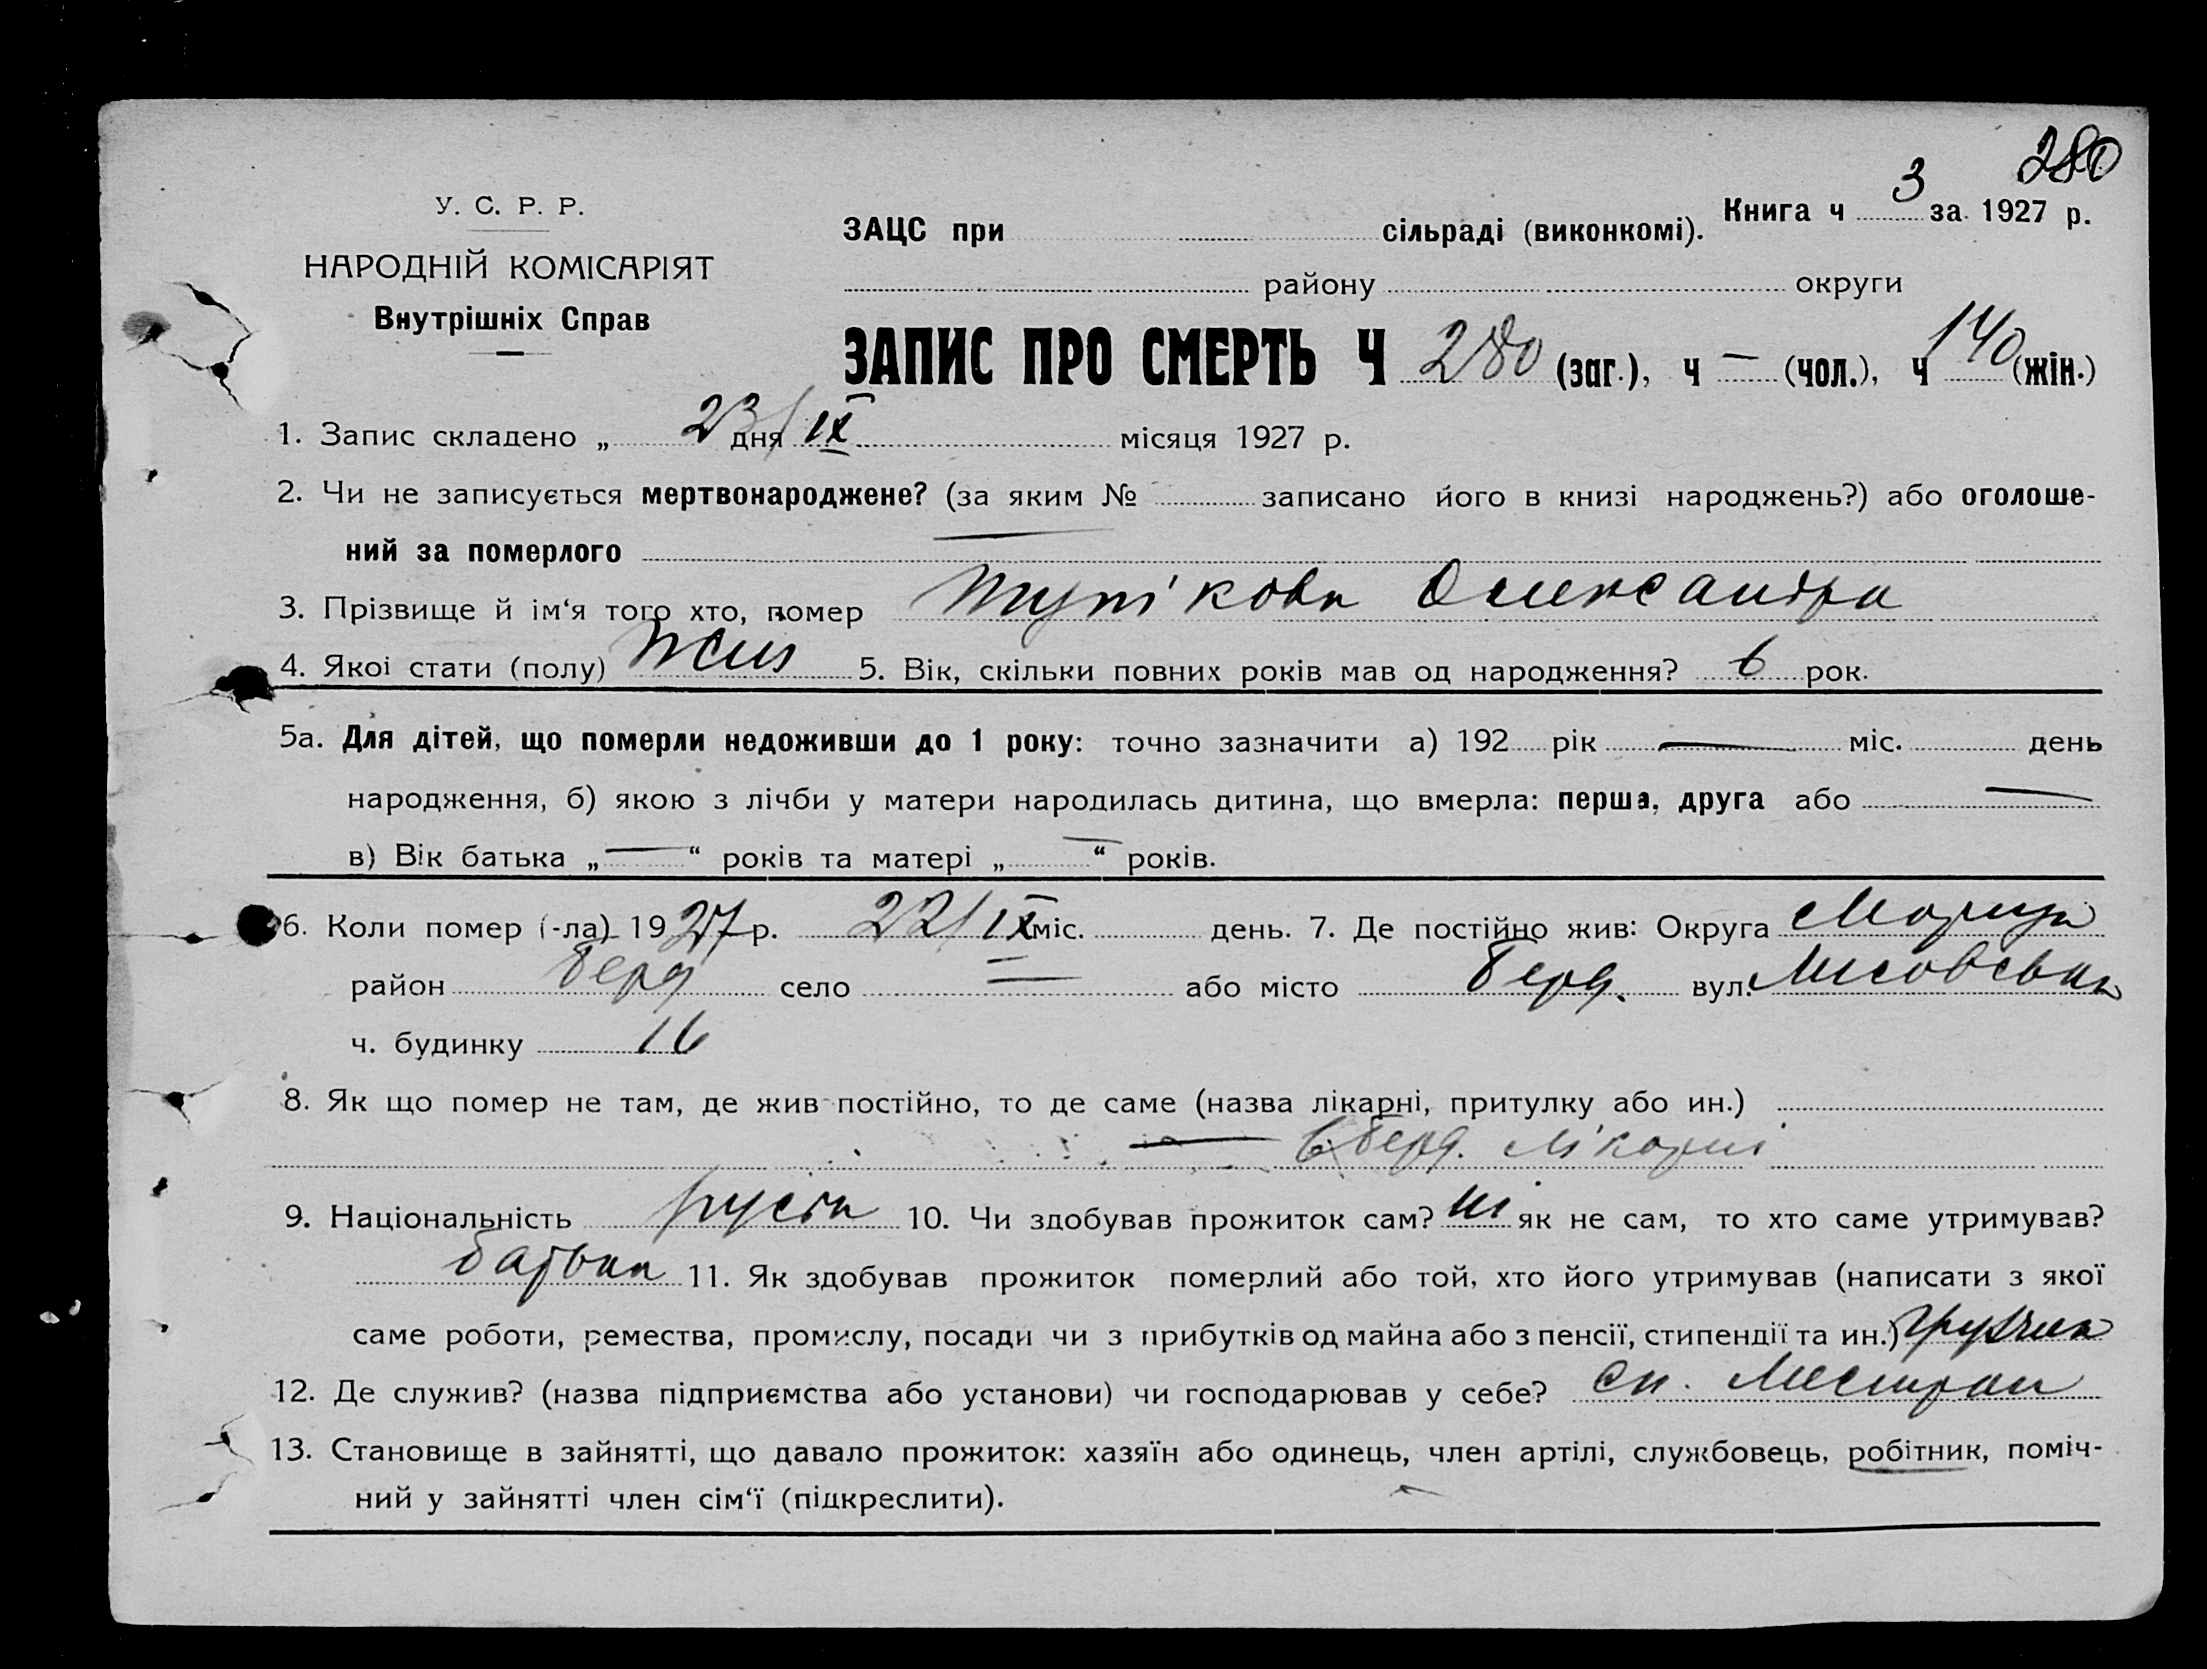 280
У. С. Р. Р.
НАРОДНІЙ КОМІСАРІЯТ
Внутрішніх Справ
ЗАЦС при сільраді (виконкомі). Книга ч 3 за 1927 р.
району округи
ЗАПИС ПРО СМЕРТЬ Ч 280 (заг.), ч — (чол.), ч 140 (жін.)
1. Запис складено „ 23 дня / IX місяця 1927 р.
2. Чи не записується мертвонароджене? (за яким № записано його в книзі народжень?) або оголоше-
ний за померлого —
3. Прізвище й ім‘я того хто, помер Тупікова Олександра
4. Якої стати (полу) жін 5. Вік, скільки повних років мав од народження? 6 рок.
5а. Для дітей, що померли недоживши до 1 року: точно зазначити а) 192 рік — міс. день
народження, б) якою з лічби у матери народилась дитина, що вмерла: перша, друга або —
в) Вік батька „ — “ років та матері „ — “ років.
6. Коли помер (-ла) 1927 р. 22/IX міс. день. 7. Де постійно жив: Округа Маріуп
район Берд село — або місто Берд. вул.
ч. будинку 16
8. Як що помер не там, де жив постійно, то де саме (назва лікарні, притулку або ин.)
— в Берд. лікарні
9. Національність руська 10. Чи здобував прожиток сам? ні як не сам, то хто саме утримував?
батько 11. Як здобував прожиток померлий або той, хто його утримував (написати з якої
саме роботи, ремества, промислу, посади чи з прибутків од майна або з пенсії, стипендії та ин.)
12. Де служив? (назва підприємства або установи) чи господарював у себе?
13. Становище в зайнятті, що давало прожиток: хазяїн або одинець, член артілі, службовець, робітник, поміч-
ний у зайнятті член сім‘ї (підкреслити).